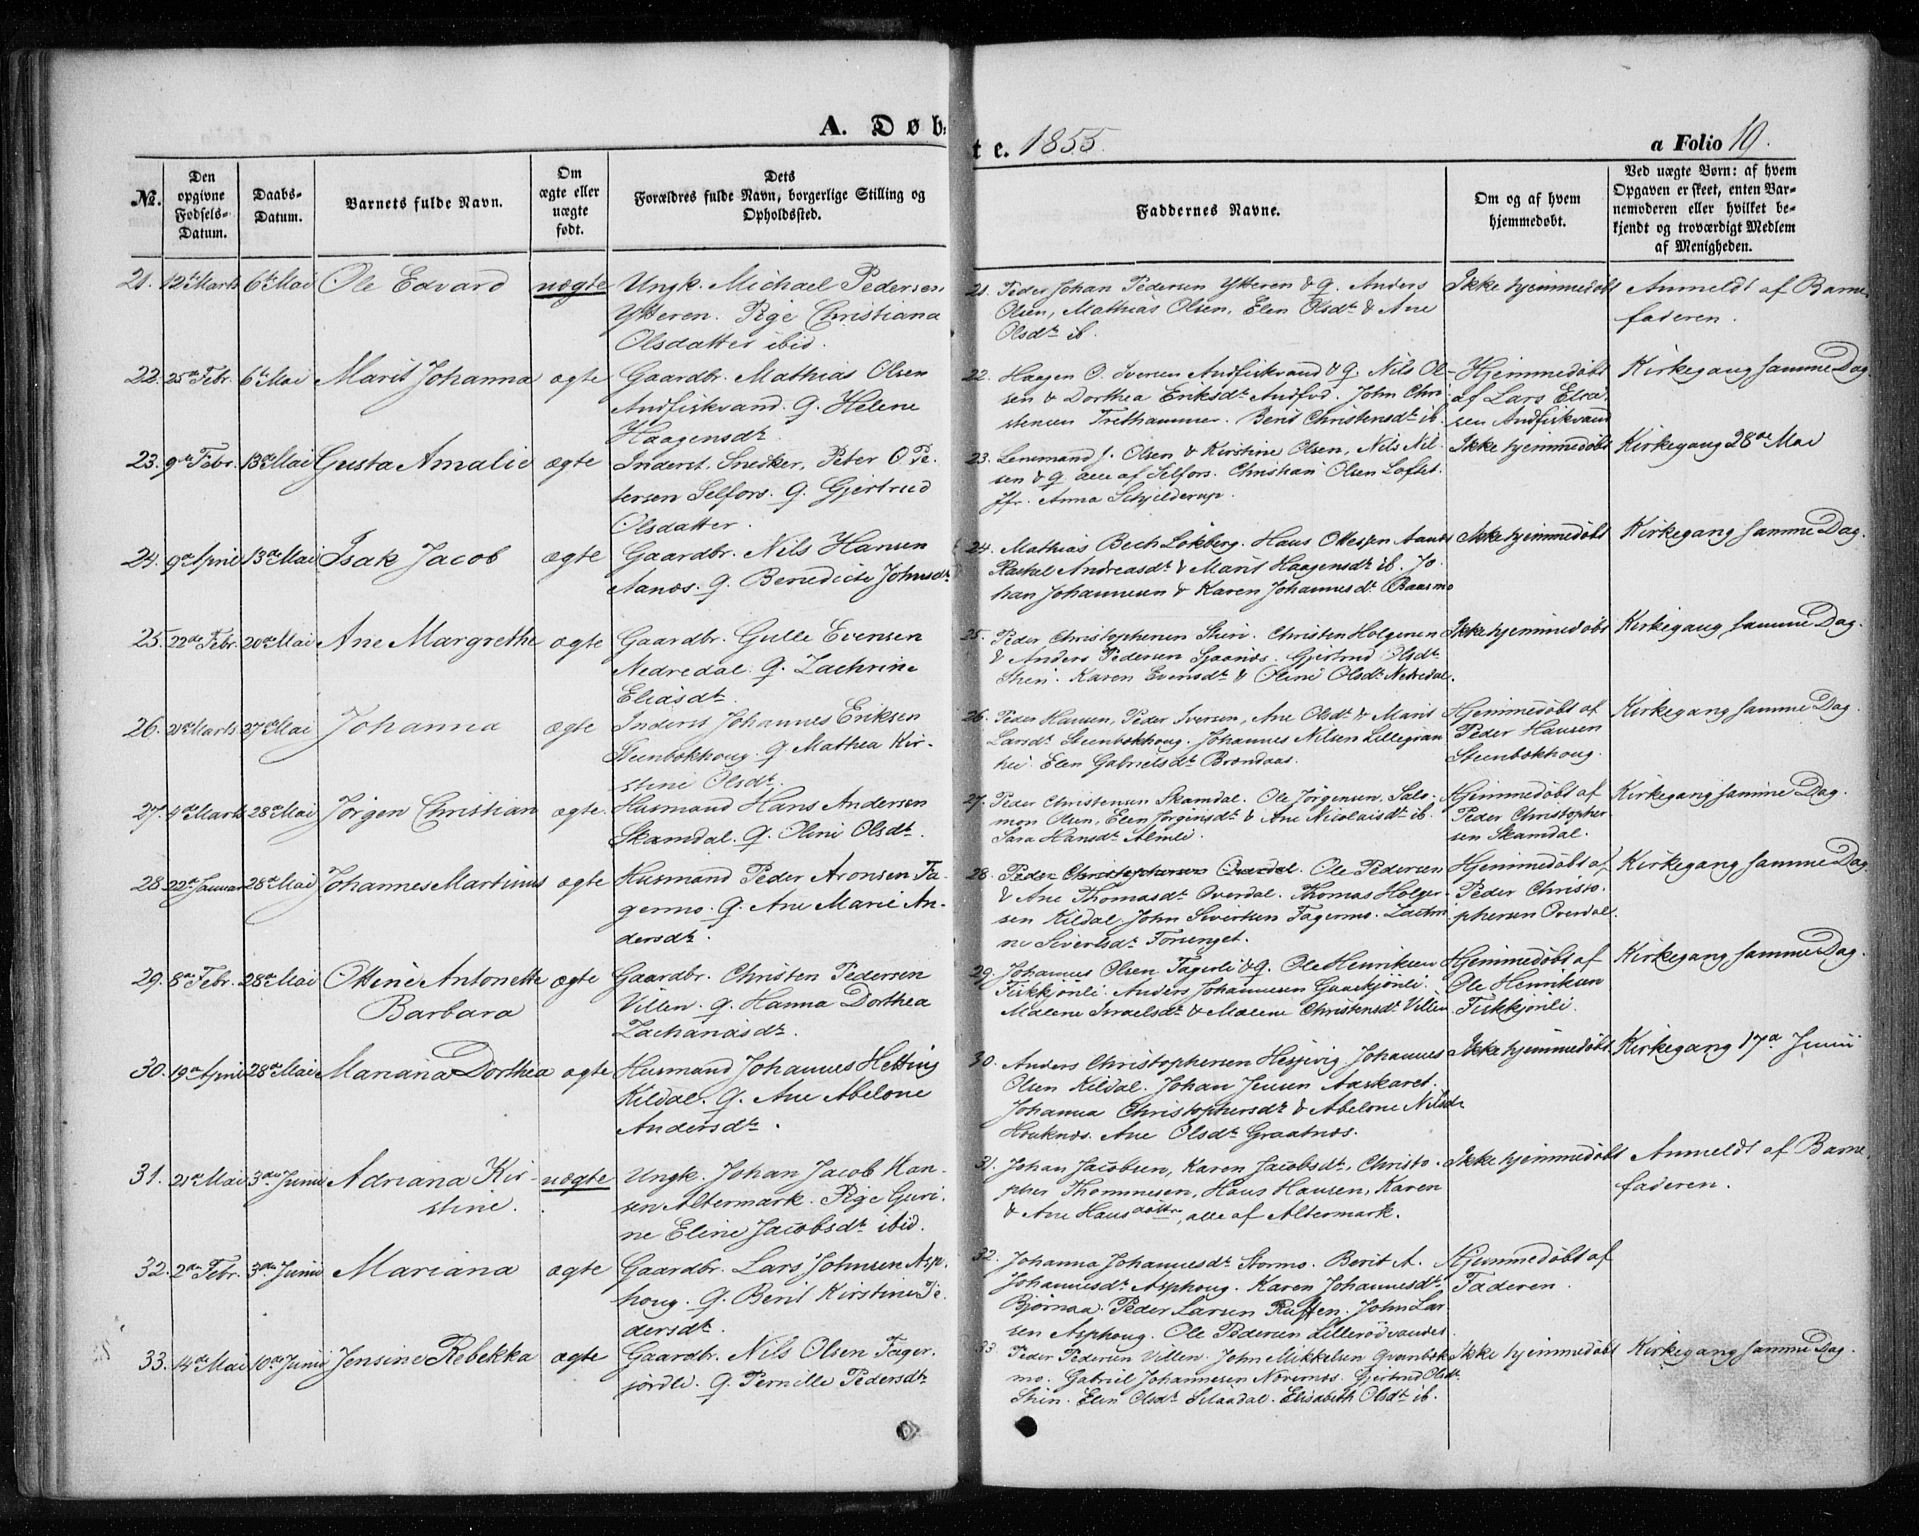 A. Døb-
te. 1855.
a Folio 19.
No.
Den opgivne Fødsels-Datum.
Daabs-Datum.
Barnets fulde Navn.
Om ægte eller uægte født.
Dets Forældres fulde Navn, borgerlige Stilling og Opholdssted.
Faddernes Navne.
Om og af hvem hjemmedøbt.
Ved uægte Børn: af hvem Opgaven er skeet, enten Barnemoderen eller hvilket bekjendt og troværdigt Medlem af Menigheden.
21. 12te Marts 6te Mai Ole Edvard uægte Ungk. Michael Pedersen
Ytteren. Pige Christiana
Olsdatter ibid.
21. Peder Johan Pedersen Ytteren & Q. Anders
Olsen, Mathias Olsen, Elen Olsdr & Ane
Olsdr ib.
Ikke hjemmedøbt
Anmeldt af Barne-
faderen.
22. 25de Febr. 6te Mai Marit Johanna ægte Gaardbr. Mathias Olsen
Andfiskvand. Q. Helene
Haagensdr.
22. Haagen O. Iversen Andfiskvand & Q. Nils Ol-
sen & Dorthea Eriksdr Andfvd. John Chri-
stensen Trethammer. Berit Christensdr ib.
Hjemmedøbt
af Lars
sen Andfiskvand
Kirkegang samme Dag.
23. 9de Febr. 13de Mai Gusta Amalie ægte Inderst. Snedker, Peter O. Pe-
tersen Selfors. Q. Gjertrud
Olsdatter.
23. Lensmand J. Olsen & Kirstine Olsen, Nils Nil-
sen & Q. alle af Selfors. Christian Olsen
Jfr. Anna Schjelderup.
Ikke hjemmedøbt
Kirkegang 28de Mai
24. 9de April 13de Mai Isak Jacob ægte Gaardbr. Nils Hansen
Aanæs. Q. Benedicte Johnsdr
24. Mathias Bech Løkberg. Hans Ottesen Aanæs
Andreasdr & Marit Haagensdr ib. Jo-
han Johannesen & Karen Johannesdr Baasmo
Ikke hjemmedøbt
Kirkegang samme Dag.
25. 22de Febr. 20de Mai Ane Margrethe ægte Gaardbr. Gulle Evensen
Nedredal. Q. Zachrine
Eliasdr.
25. Peder Christophersen Stien. Christen Holgersen
& Anders Pedersen Sjaanæs. Gjertrud Olsdr
Stien. Karen Evensdr & Oline Olsdr Nedredal.
Ikke hjemmedøbt
Kirkegang samme Dag.
26. 21de Marts. 27de Mai Johanna ægte Inderst Johannes Eriksen
Steenbokhoug. Q. Mathea Kir-
stine Olsdr.
26. Peder Hansen, Peder Iversen, Ane Olsdr & Marit
Larsdr Steenbokhoug. Johannes Nilsen Lillegran-
hei. Elen Gabrielsdr Brændaas.
Hjemmedøbt af
Peder Hansen
Steenbokhoug.
Kirkegang samme Dag.
27. 4de Marts 28de Mai Jørgen Christian ægte. Husmand Hans Andersen
Skamdal. Q. Oline Olsdr.
27. Peder Christensen Skamdal. Ole Jørgensen. Salo-
mon Olsen, Elen Jørgensdr & Ane Nicolaisdr ib.
Sara Hansdr Almli.
Hjemmedøbt af
Peder Christopher-
sen Skamdal.
Kirkegang samme Dag.
28. 22de Januar 28de Mai Johannes Martinus ægte Husmand Peder Aronsen Fa-
germo. Q. Ane Marie An-
dersdr.
28. Peder Christophersen Overdal. Ole Pedersen
& Ane Thomasdr Overdal. Thomas Holger-
sen Kildal. John Sivertsen Fagermo. Zachri-
ne Sivertsdr Forenget.
Hjemmedøbt af
Peder Christo-
phersen Overdal.
Kirkegang samme Dag.
29. 8de Febr. 28de Mai Ottine Antonette ægte Gaardbr. Christen Pedersen
Barbara
Villen. Q. Hanna Dorthea
Zachariasdr.
29. Johannes Olsen Fagerli & Q. Ole Henriksen
Fiskkjønli. Anders Johannesen
Malene Israelsdr & Malene Christensdr Villen
Hjemmedøbt af
Ole Henriksen
Fiskkjønli.
Kirkegang samme Dag.
30. 19de April 28de Mai Mariana Dorthea ægte Husmand Johannes Hetting
Kildal. Q. Ane Abelone
Andersdr.
30. Anders Christophersen Hesjevig. Johannes
Olsen Kildal. Johan Jensen Aaskaret.
Johanna Christophersdr & Abelone Nilsdr
Houknæs. Ane Olsdr Graatnæs.
Ikke hjemmedøbt
Kirkegang 17de Junii
31. 21de Mai 3die Junii Adriana Kir-
stine.
uægte Ungk. Johan Jacob Han-
sen Altermark. Pige Guri-
ne Eline Jacobsdr ibid.
31. Johan Jacobsen, Karen Jacobsdr, Christo-
pher Thommesen, Hans Hansen, Karen
& Ane Hansdøttre, alle af Altermark.
Ikke hjemmedøbt
Anmeldt af Barne-
faderen.
32. 2den Febr. 3die Junii Mariana ægte Gaardbr. Lars Johnsen Asp-
houg. Q. Berit Kirstine Pe-
dersdr.
32. Johanna Johannesdr Stormo. Berit A.
Johannesdr Asphoug. Karen Johannesdr
Bjørnaa. Peder Larsen. John Lar-
sen Asphoug. Ole Pedersen Lillerødvandet
Hjemmedøbt af
Faderen.
33. 14de Mai 10de Junii Jensine Rebekka ægte Gaardbr. Nils Olsen Fager-
jordli. Q. Pernille Pedersdr
33. Peder Pedersen Villen. John Mikkelsen
mo. Gabriel Johannesen Nævernæs. Gjertrud Olsdr
Stien. Elen Olsdr. Elisabeth Olsdr ib.
Ikke hjemmedøbt
Kirkegang samme Dag.